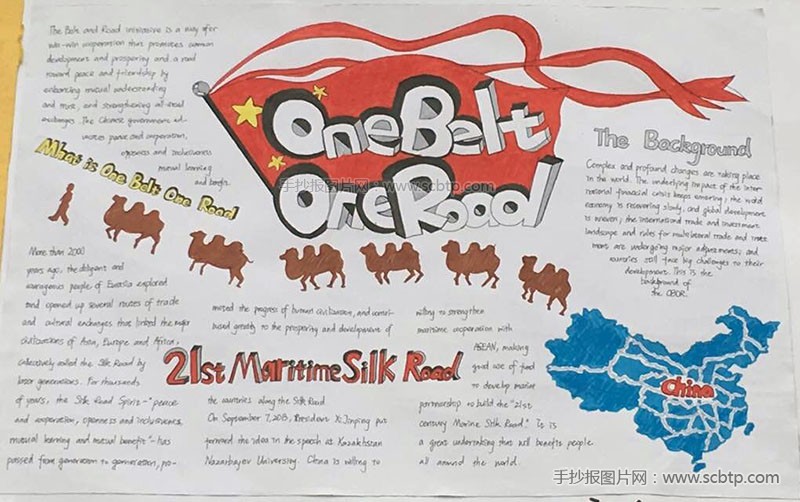 The Belt and Road initiative is a way for
win-win cooperation that promotes common
development and prosperity and a road
toward peace and friendship by
enhancing mutual understanding
and trust, and strengthening all-road
exchanges. The Chinese government ad-
vocates peace and cooperation,
openness and inclusiveness
mutual learning
and benefit.
One Belt
One Road
手抄报图片网：www.scbtp.com
What is One Belt One Road
More than 2000
years ago, the diligent and
courageous people of Eurasia explored
and opened up several routes of trade
and cultural exchanges that linked the major
civilizations of Asia, Europe and Africa,
collectively called the Silk Road by
later generations. For thousands
of years, the Silk Road Spirit-"peace
and cooperation, openness and inclusiveness,
mutual learning and mutual benefit"-has
passed from generation to generation, pro-
moted the progress of human civilization, and contri-
buted greatly to the prosperity and development of
21st Maritime Silk Road
the countries along the Silk Road.
On September 7, 2013, President Xi Jinping put
forward the idea in the speech at Kazakhstan
Nazarbayev University. China is willing to
willing to strengthen
maritime cooperation with
ASEAN, making
good use of fund
to develop marine
partnership to build the "21st
century Marine Silk Road." It is
a great undertaking that will benefits people
all around the world.
The Background
Complex and profound changes are taking place
in the world. The underlying impact of the inter-
national financial crisis keeps emerging; the world
economy is recovering slowly, and global development
is uneven; the international trade and investment
landscape and rules for multilateral trade and invest
ment are undergoing major adjustments; and
countries still face big challenges to their
development. This is the
background of
the OBOR.
China
手抄报图片网：www.scbtp.com